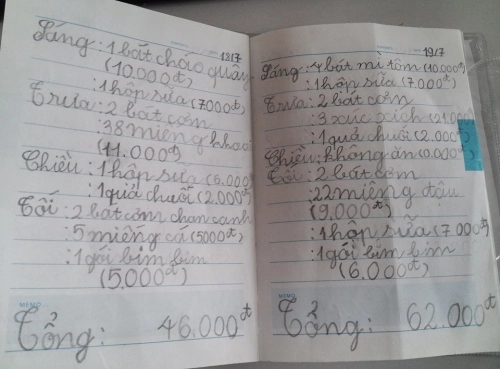 18/7
Sáng: 1 bát cháo quẩy
(10.000đ)
: 1 hộp sữa (7000đ)
Trưa: 2 bát cơm
: 38 miếng khoai
(11.000đ)
Chiều: 1 hộp sữa (6.000đ)
: 1 quả chuối (2.000đ)
Tối: 2 bát cơm chan canh
: 5 miếng cá (5000đ)
: 1 gói bim bim
(5.000đ)
MEMO
Tổng: 46.000đ
19/7
Sáng: 4 bát mì tôm (10.000đ)
: 1 hộp sữa (7.000đ)
Trưa: 2 bát cơm
: 3 xúc xích (21.000
: 1 quả chuối (2.000đ)
Chiều: không ăn (0.000đ)
Tối: 2 bát cơm
: 22 miếng đậu
(9.000đ)
: 1 hộp sữa (7.000đ)
: 1 gói bim bim
(6.000đ)
MEMO
Tổng: 62.000đ